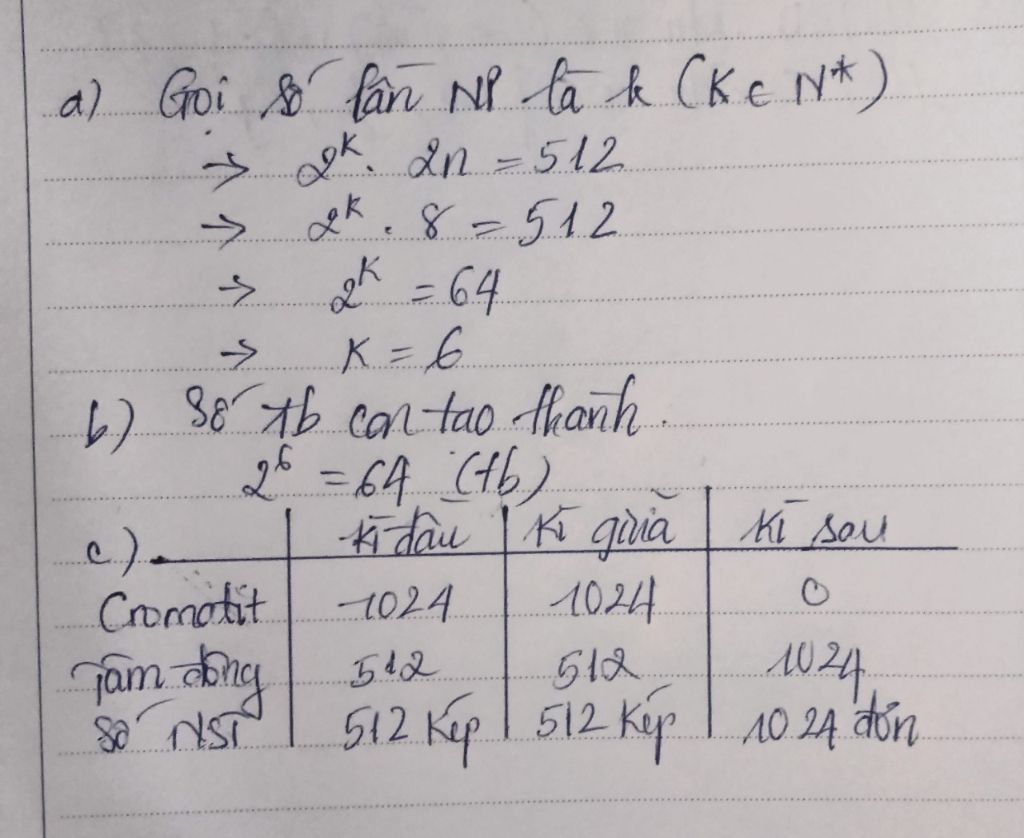 a) Gọi số lần NP là k (K ∈ N*)
→ 2^K . 2n = 512
→ 2^K . 8 = 512
→ 2^K = 64
→ K = 6
b) Số tb con tạo thành.
2^6 = 64 (tb)
c) Kì đầu Kì giữa Kì sau
Cromatit 1024 1024 0
Tâm động 512 512 1024
Số NST 512 Kép 512 Kép 1024 đơn